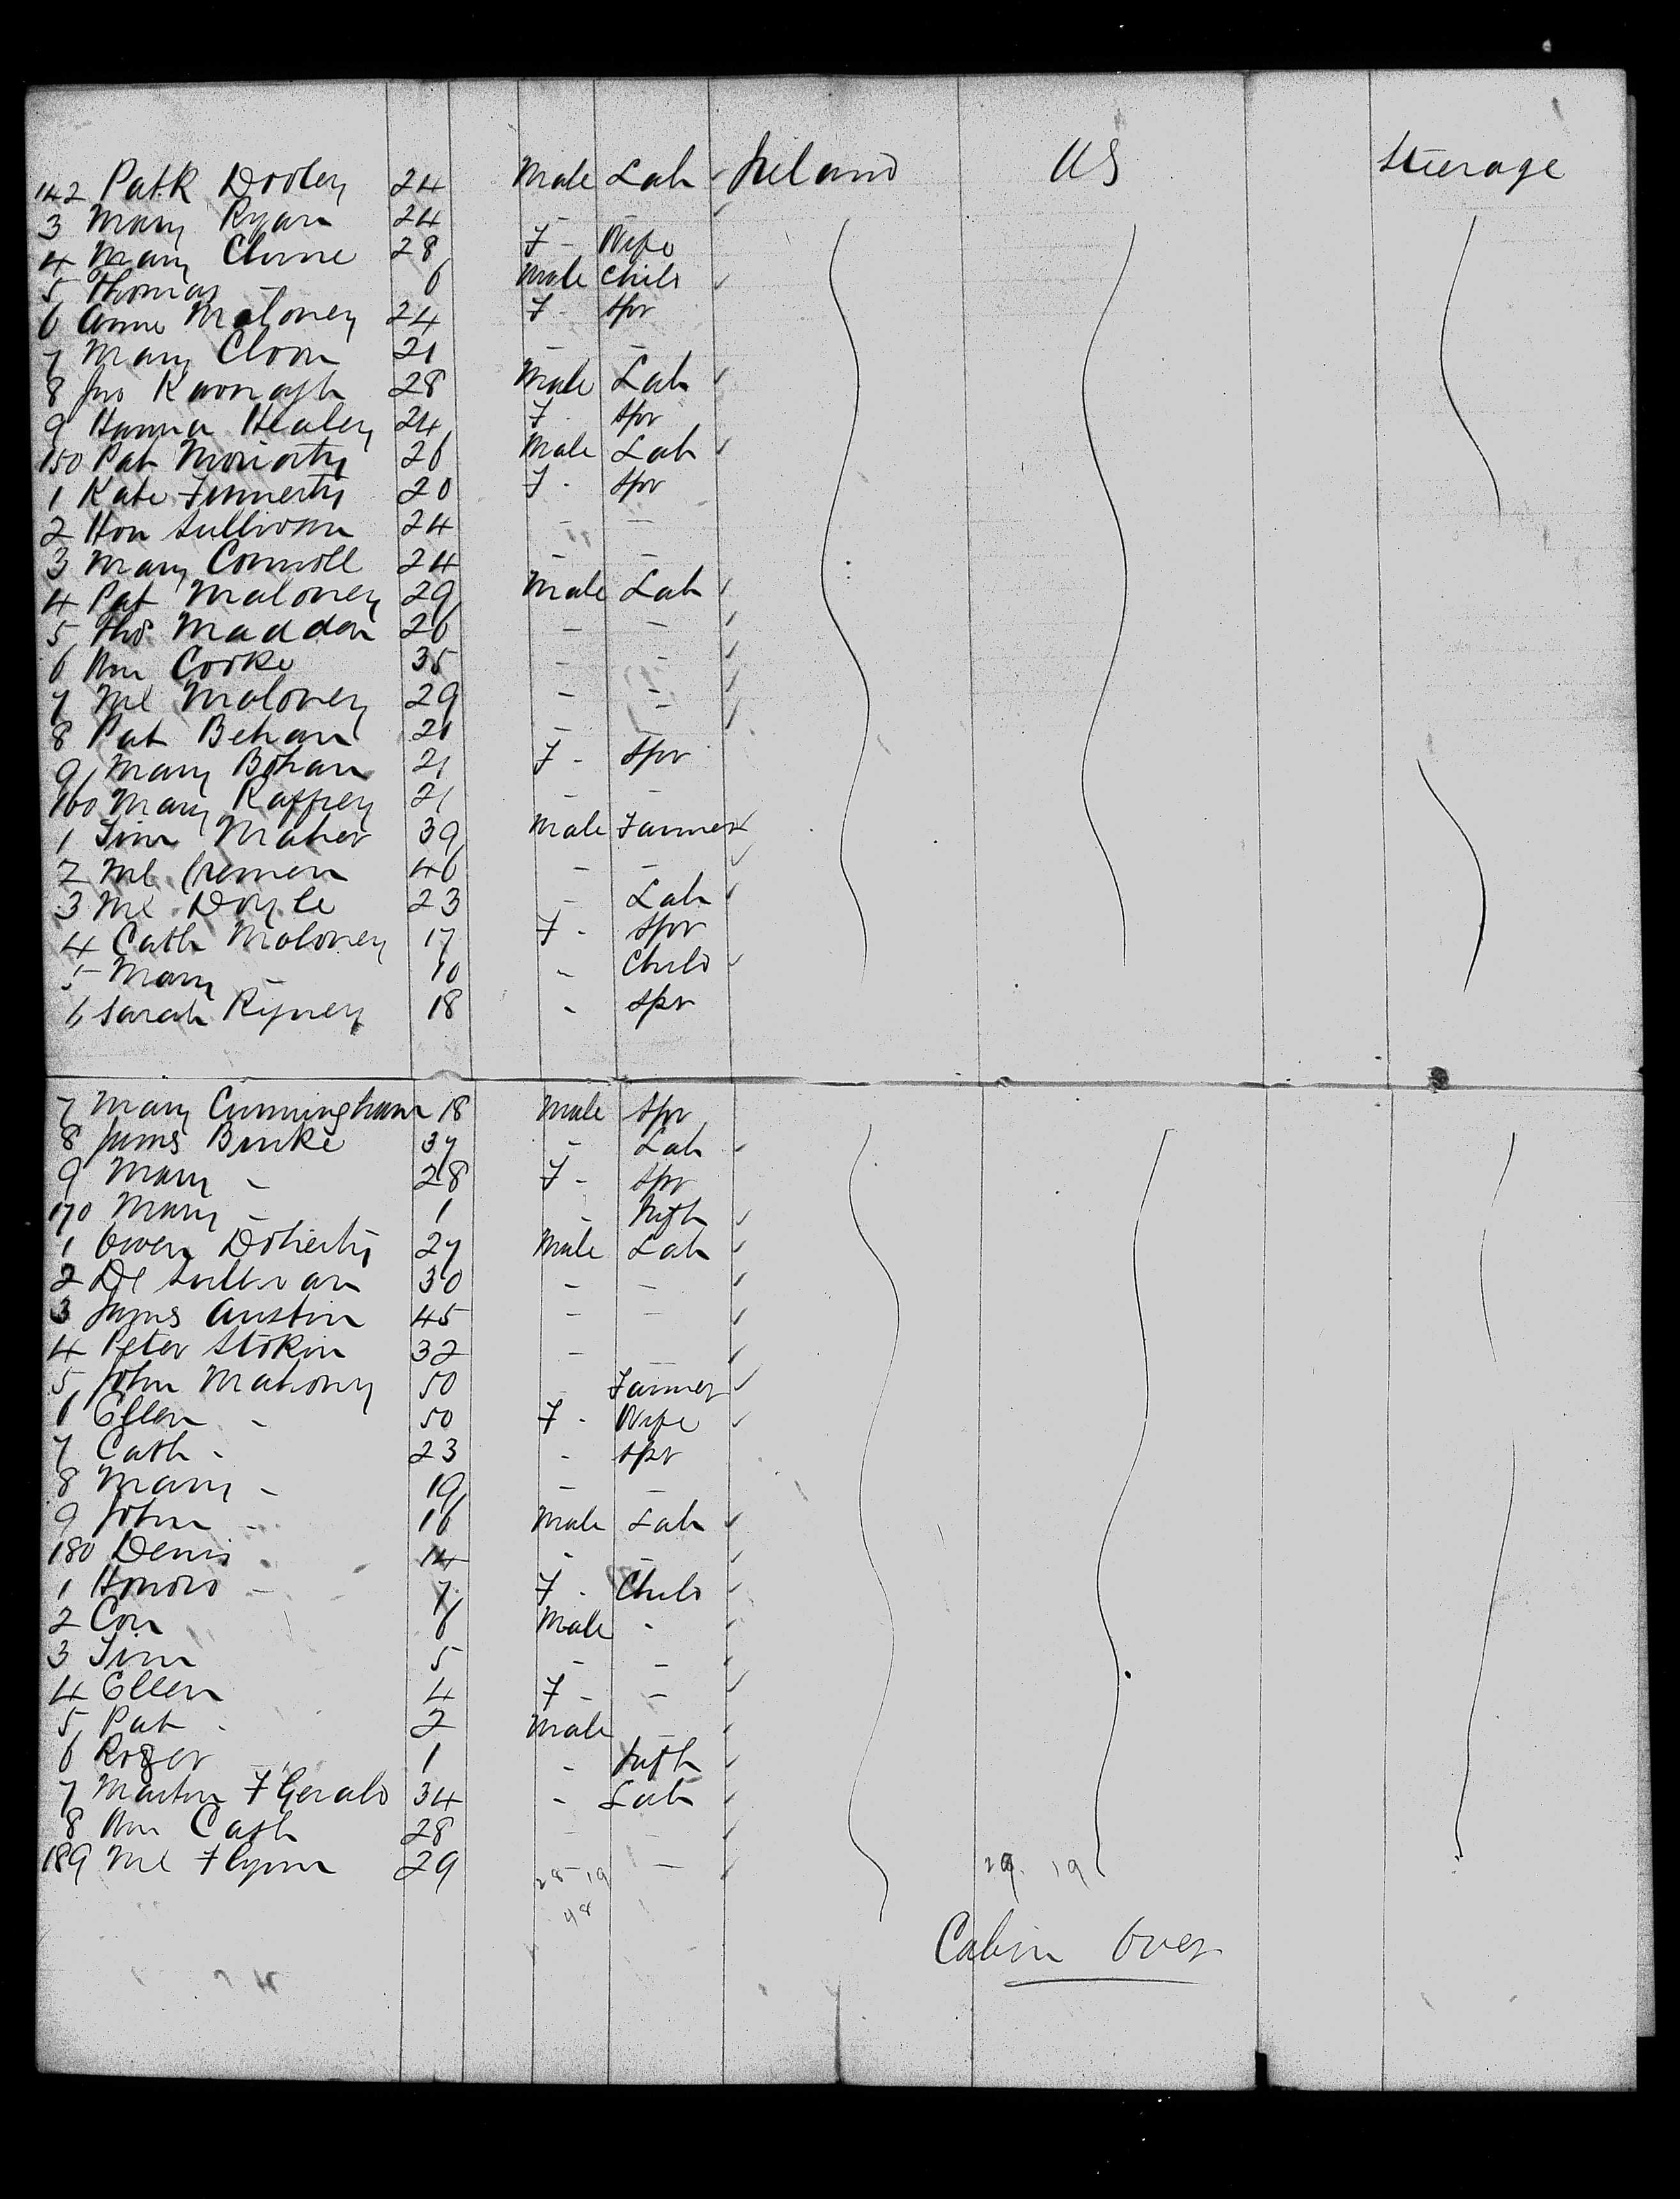 142 Patk Dooley 24 Male Lab Ireland US Steerage
3 Mary Ryan 24 - -
4 Mary Clune 28 F - Wife
5 Thomas - 6 Male Child
6 Anne Maloney 24 F - Spr
7 Mary Cloon 21 - -
8 Jno Kavnagh 28 Male Lab
9 Hanna Healey 24 F - Spr
150 Pat Moriarty 26 Male Lab
1 Kate Finnerty 20 F - Spr
2 Hon Sullivan 24 - -
3 Mary Connoll 24 - -
4 Pat Maloney 29 Male Lab
5 Thos Madden 26 - -
6 Wm Cooke 35 - -
7 Ml Maloney 29 - -
8 Pat Behan 21 - -
9 Mary Behan 21 F - Spr
160 Mary Raffrey 21 - -
1 Tim Maher 39 Male Farmer
2 Ml Cremen 46 - -
3 Ml Doyle 23 - Lab
4 Cath Maloney 17 F - Spr
5 Mary - 10 - Child
6 Sarah Ryney 18 - Spr
7 Mary Cunningham 18 Male Spr
8 James Burke 37 - Lab
9 Mary - 28 F - Spr
170 Mary - 1 - Infh
1 Owen Doherty 27 Male Lab
2 Dl Sullivan 30 - -
3 James Austin 45 - -
4 Peter Stokin 32 - -
5 John Mahony 50 - Farmer
6 Ellen - 50 F - Wife
7 Cath - 23 - Spr
8 Mary - 19 - -
9 John - 16 Male Lab
180 Denis - 14 - -
1 Honoro - 7 F - Child
2 Con 6 Male -
3 Tim 5 - -
4 Ellen 4 F - -
5 Pat - 2 Male -
6 Roger 1 - Infh
7 Martin FGerald 34 - Lab
8 Wm Cash 28 - -
189 Ml Flynn 29 - -
28 19
29 19
48
Cabin Over